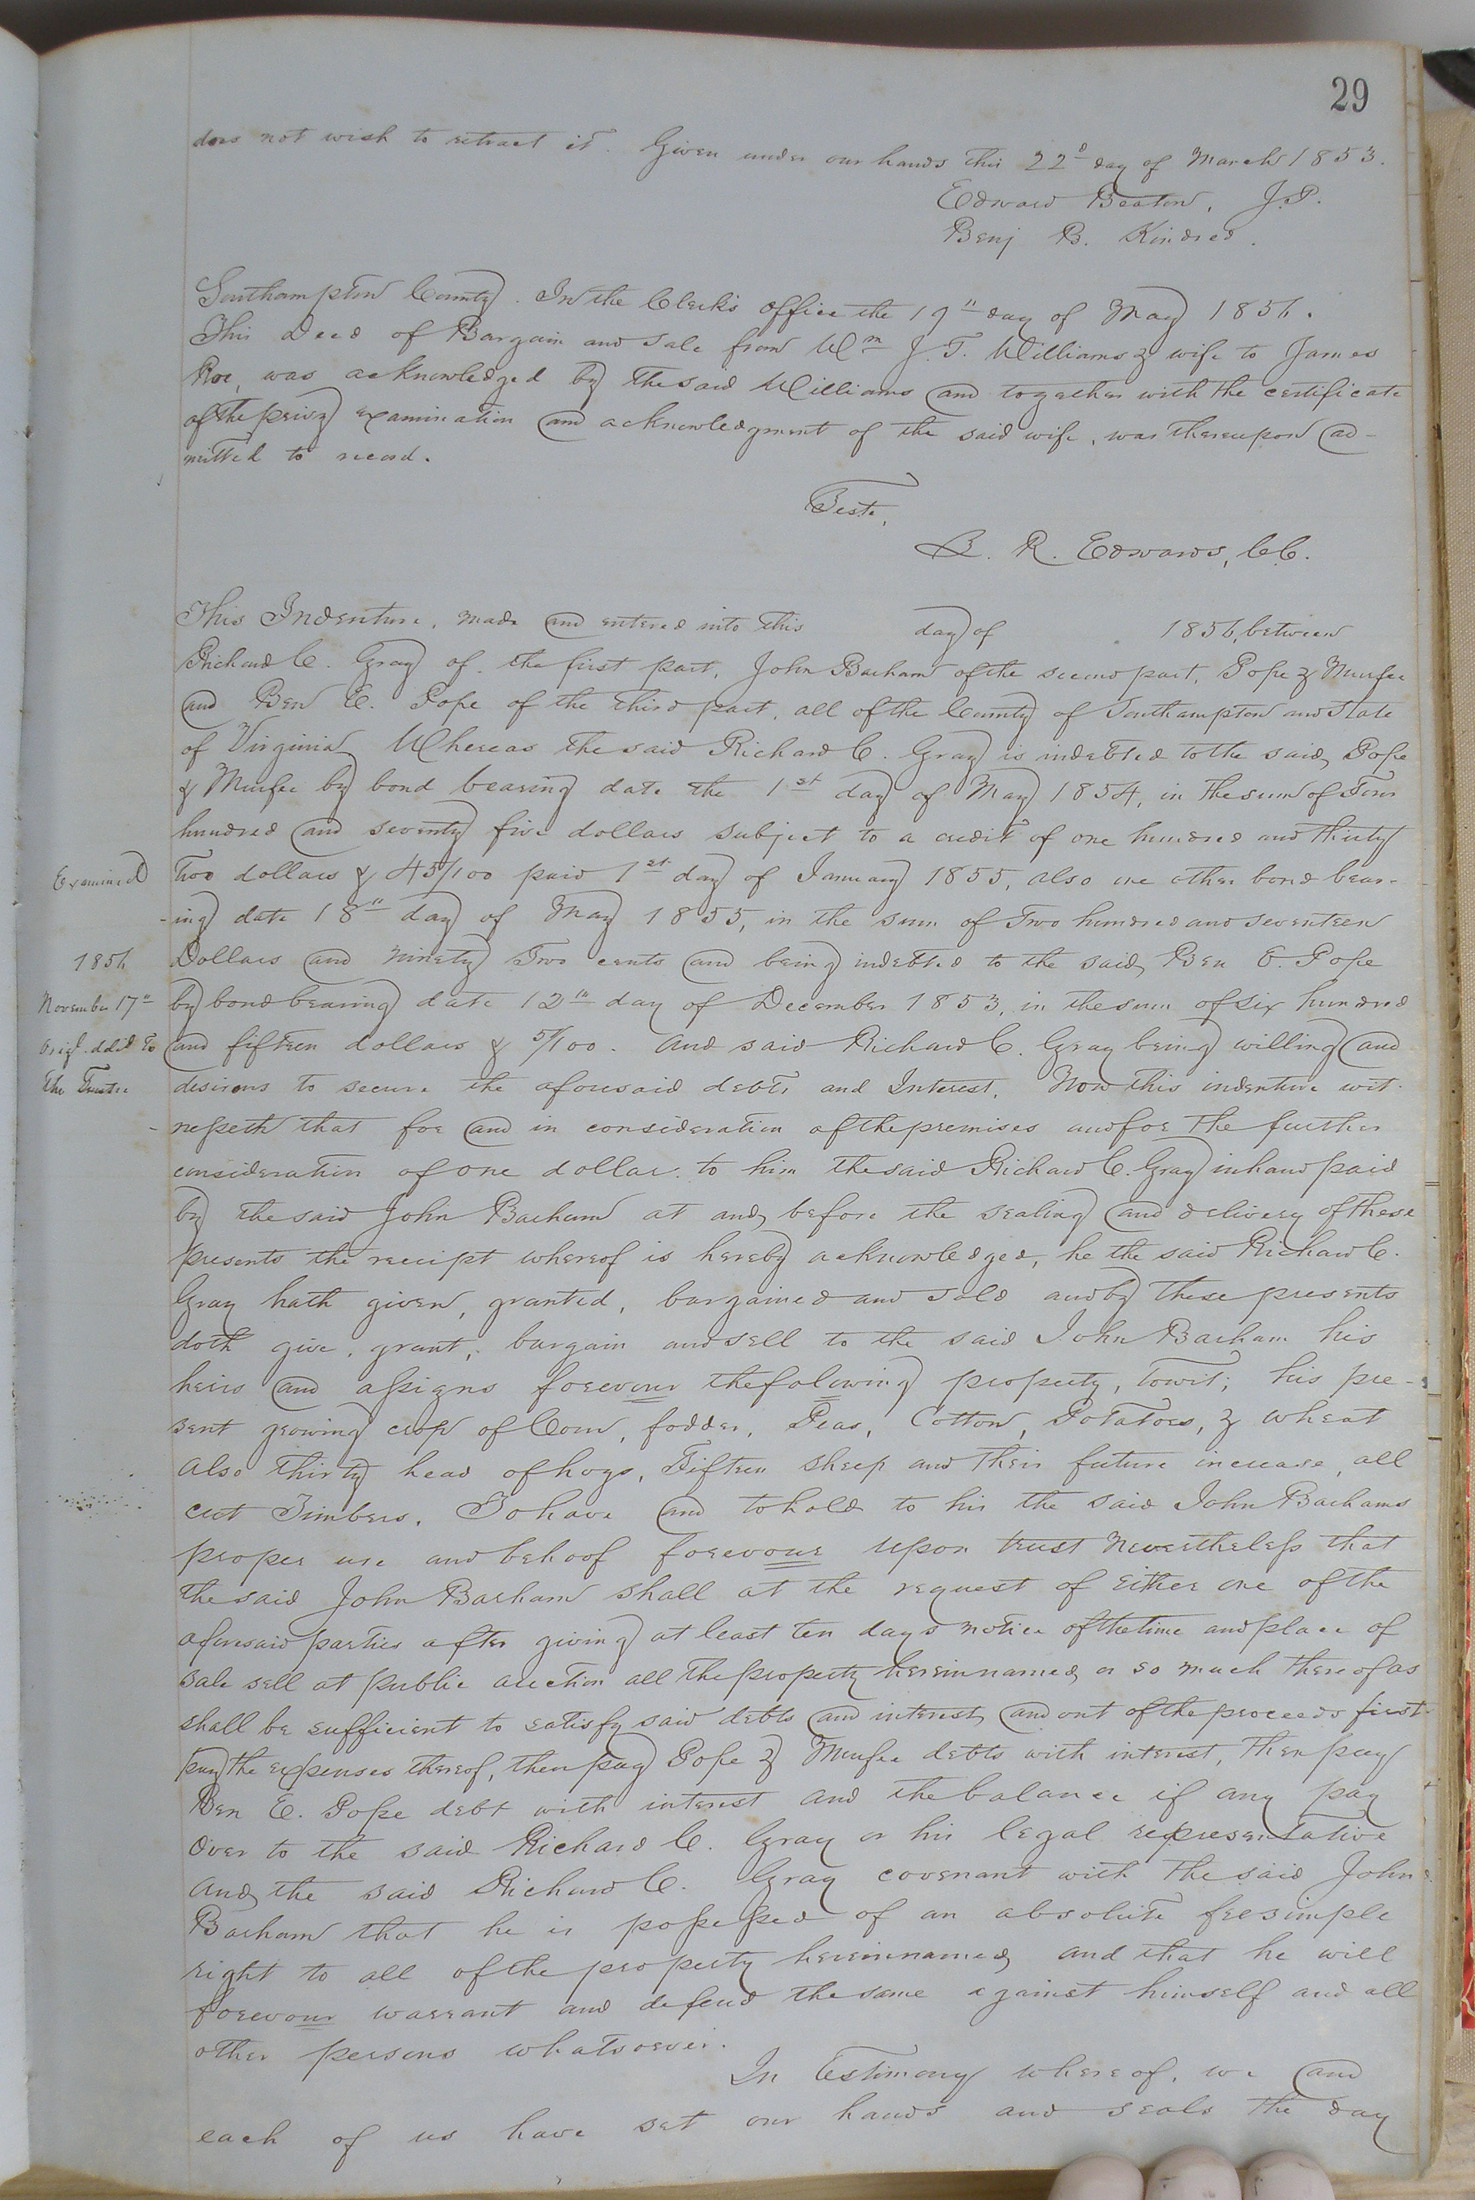 29
does not wish to retract it. Given under our hands this 22d day of March 1853.
Edward Beaton, J.P.
Benj B. Kindred.
Southampton County. In the Clerk's office the 19" day of May 1856.
This Deed of Bargain and sale from Wm J. T. Williams & wife to James
Roe, was acknowledged by the said Williams and together with the certificate
of the privy examination and acknowledgment of the said wife, was thereupon ad-
mitted to record.
Teste,
L. R. Edwards, C.C.
This Indenture, made and entered into this day of 1856, between
Richard C. Gray of the first part, John Barham of the second part, Pope & Murfee
and Ben E. Pope of the third part, all of the County of Southampton and State
of Virginia, Whereas the said Richard C. Gray is indebted to the said, Pope
& Murfee by bond bearing date the 1st day of May 1854, in the sum of Four
hundred and seventy five dollars subject to a credit of one hundred and thirty
Examined
Two dollars & 45/100 paid 1st day of January 1855, also one other bond bear-
-ing date 18" day of May 1855, in the sum of Two hundred and seventeen
1856
Dollars and ninety Two cents and being indebted to the said, Ben E. Pope
November 17"
by bond bearing date 12th day of December 1853, in the sum of six hundred
Origl. ddld. to
and fifteen dollars & 51/100. And said Richard C. Gray being willing and
the Trustee
desirous to secure the aforesaid debts and Interest. Now this indenture wit-
-nesseth that for and in consideration of the premises and for the further
consideration of one dollar to him the said Richard C. Gray in hand paid
by the said John Barham at and, before the sealing and delivery of these
presents the receipt whereof is hereby acknowledged, he the said Richard C.
Gray hath given, granted, bargained and sold and by these presents
doth give, grant, bargain and sell to the said John Barham his
heirs and assigns forevour the folowing property, towit; his pre-
sent growing crop of Corn, fodder, Peas, Cotton, Potatoes, & wheat
also thirty head of hogs, Fifteen sheep and their future increase, all
cut Timbers. To have and to hold to his the said John Barhams
proper use and behoof forevour upon trust Nevertheless that
the said John Barham shall at the request of Either one of the
aforesaid parties after giving at least ten days notice of the time and place of
sale sell at public auction all the property herein named, or so much thereof as
shall be sufficient to satisfy said debts and interest, and out of the proceeds first
pay the expenses thereof, then pay Pope & Murfee debts with interest, then pay
Ben E. Pope debt with interest and the balance if any pay
Over to the said Richard C. Gray or his legal representative
And, the said Richard C. Gray covenant with the said John
Barham that he is possessed of an absolute feesimple
right to all of the property herein named, and that he will
forevour warrant and defend the same against himself and all
other persons whatsoever.
In testimony whereof, we and
each of us have set our hands and seals the day